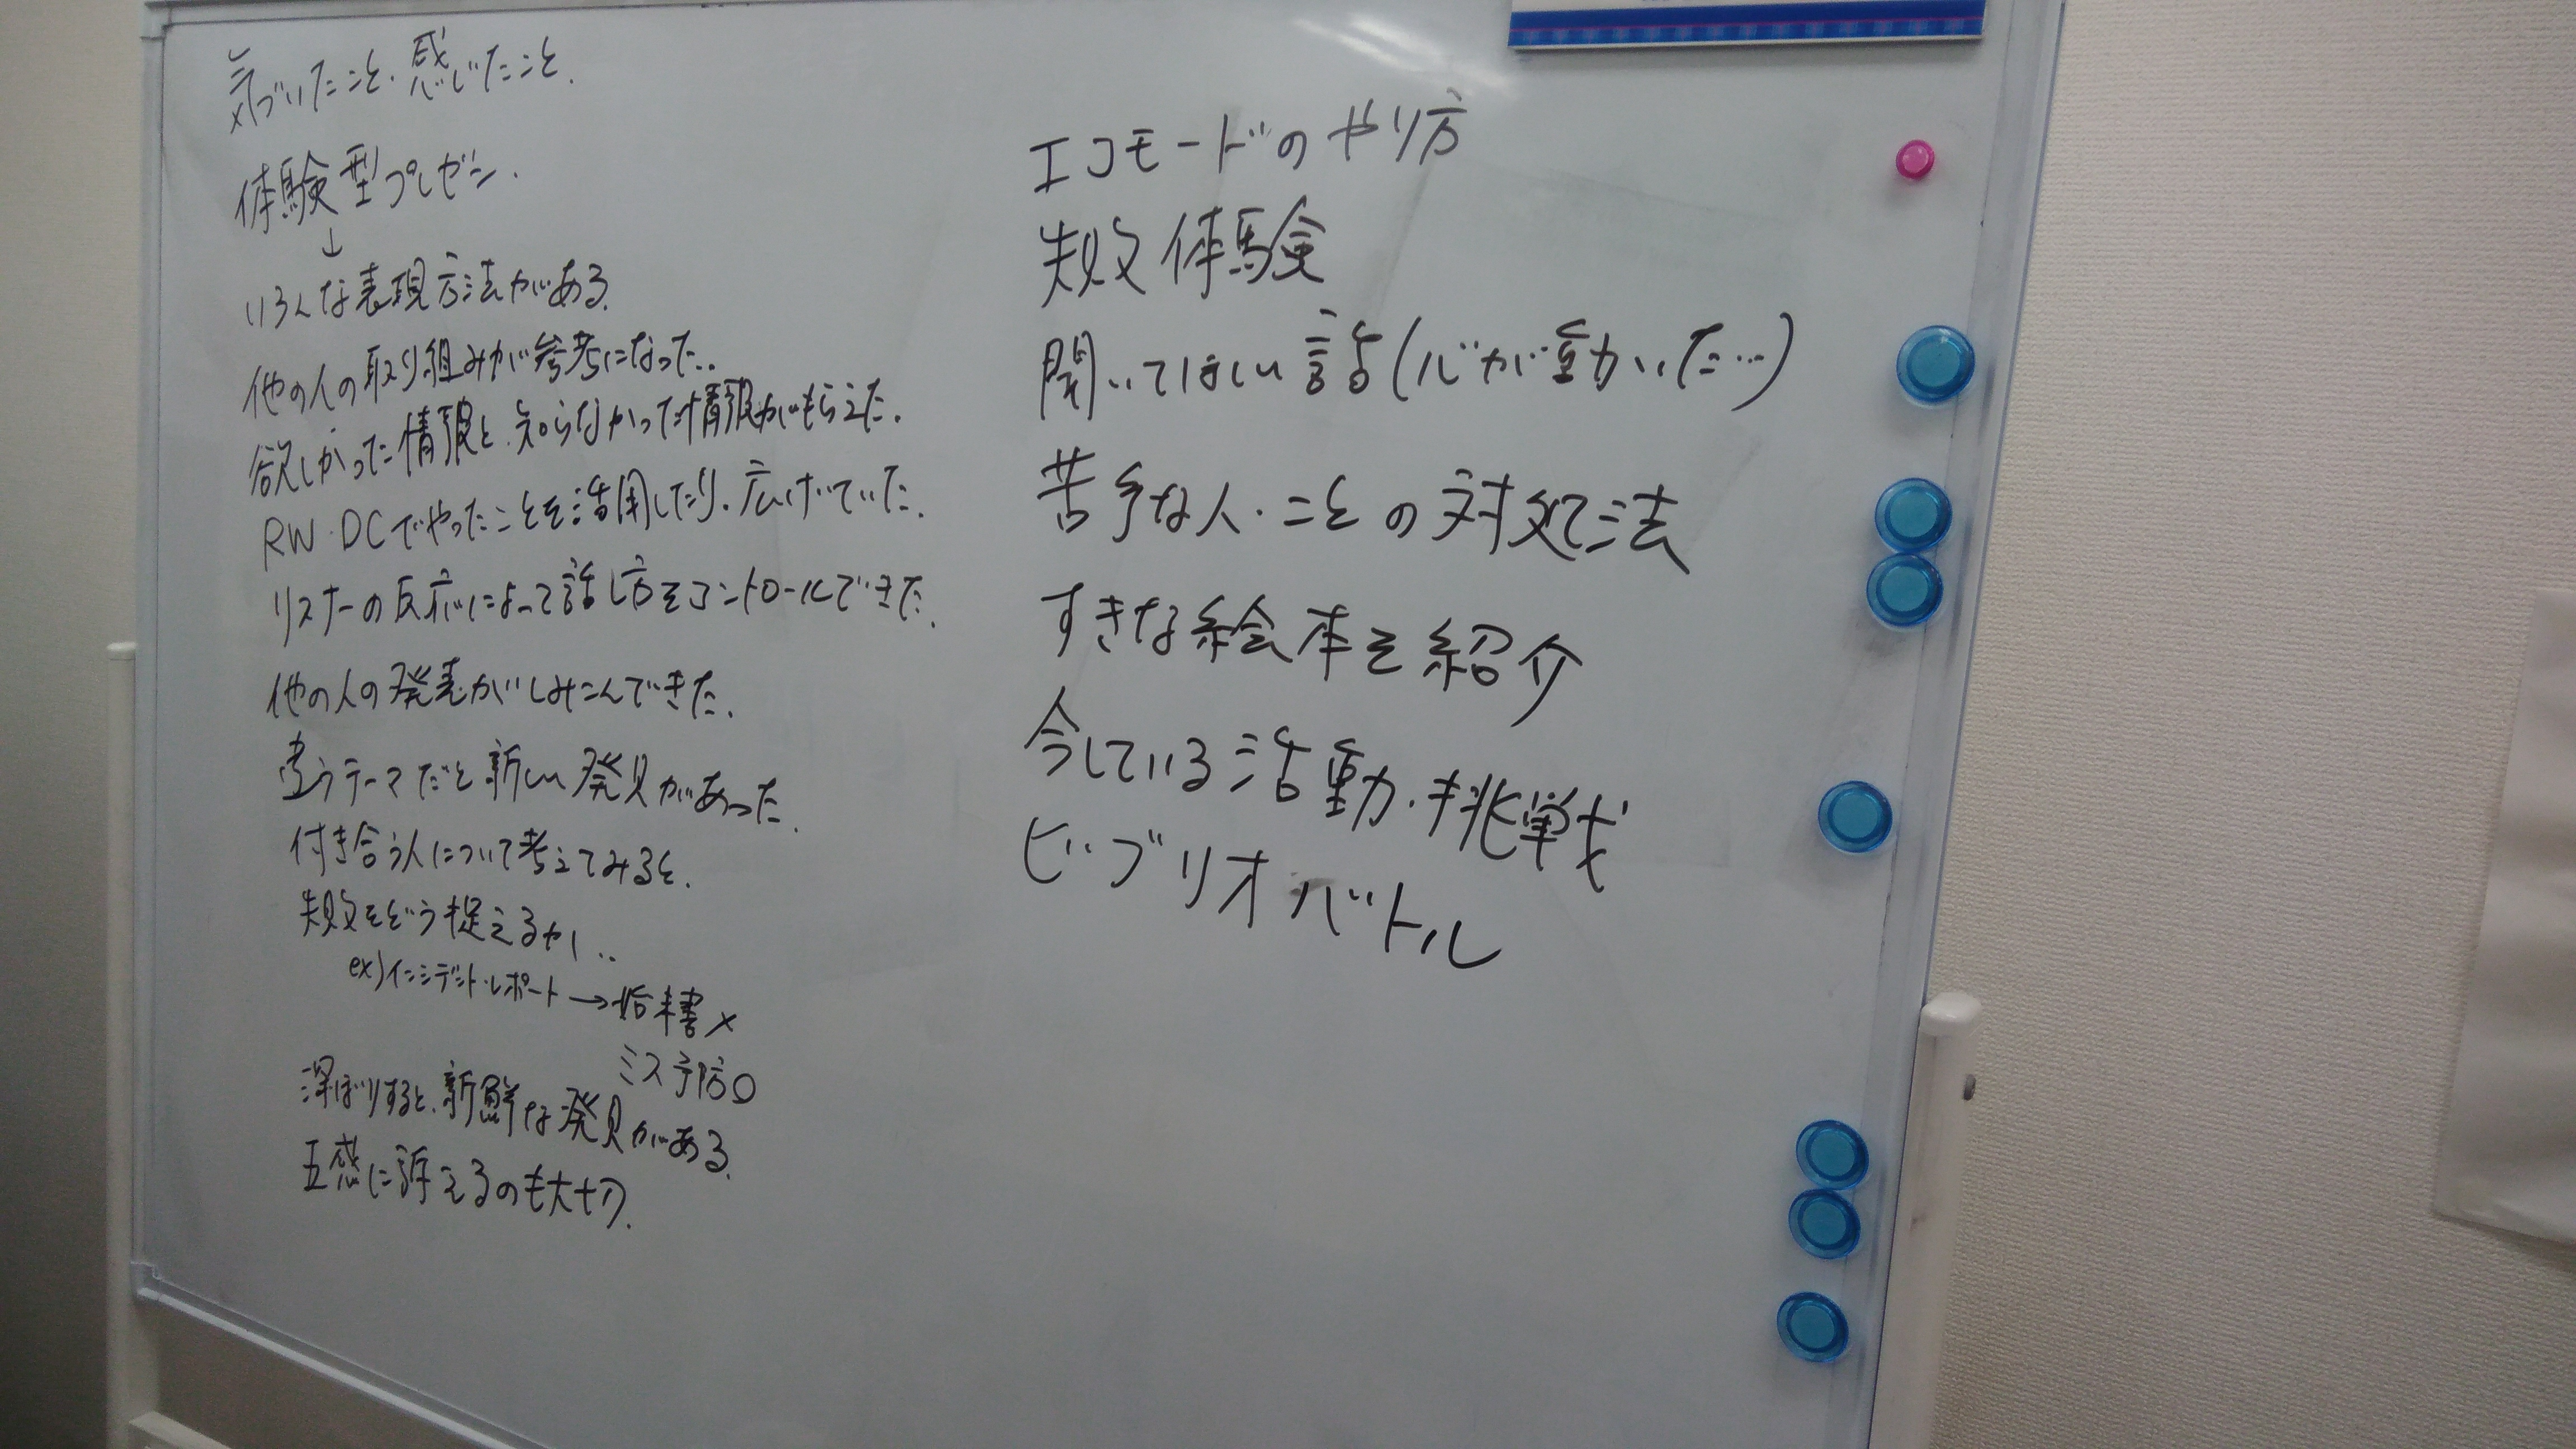 気づいたこと・感じたこと.
体験型プレゼン.
↓
いろんな表現方法がある.
他の人の取り組みが参考になった..
欲しかった情報と、知らなかった情報がもらえた.
RW・DCでやったことを活用したり、広げていた.
リスナーの反応によって話し方をコントロールできた.
他の人の発表がしみこんできた.
違うテーマだと新しい発見があった.
付き合う人について考えてみると.
失敗をどう捉えるか..
ex)インシデント・レポート→始末書×
ミス予防○
深ぼりすると、新鮮な発見がある.
五感に訴えるのも大切.
エコモードのやり方
失敗体験
聞いてほしい話(心が動いた…)
苦手な人・ことの対処法
すきな絵本を紹介
今している活動・挑戦
ビブリオバトル